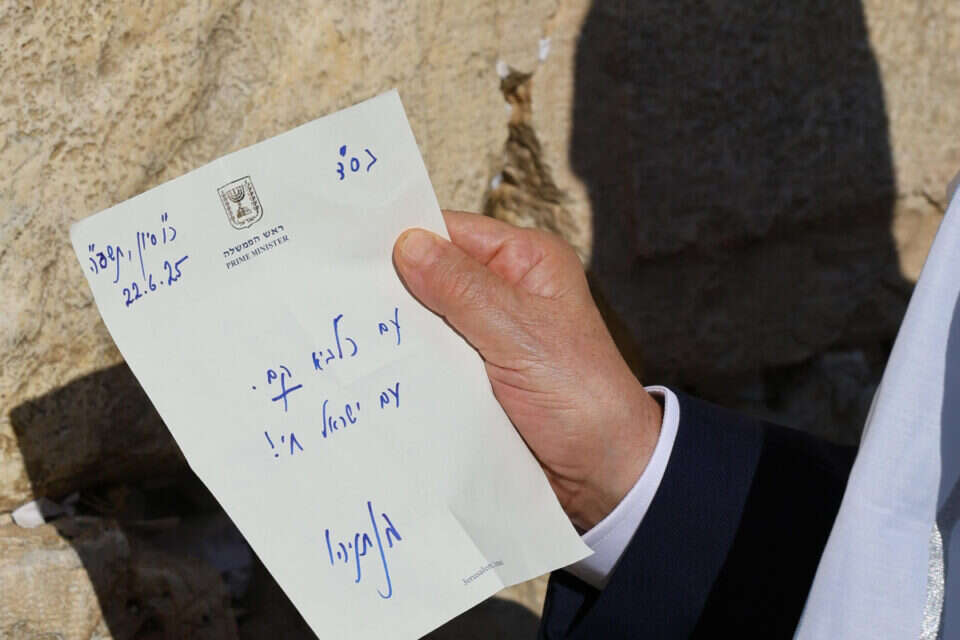 בס"ד
כ"ו סיון, תשפ"ה
22.6.25
ישראל
ראש הממשלה
PRIME MINISTER
עם כלביא קם.
עם ישראל חי!
ב. נתניהו